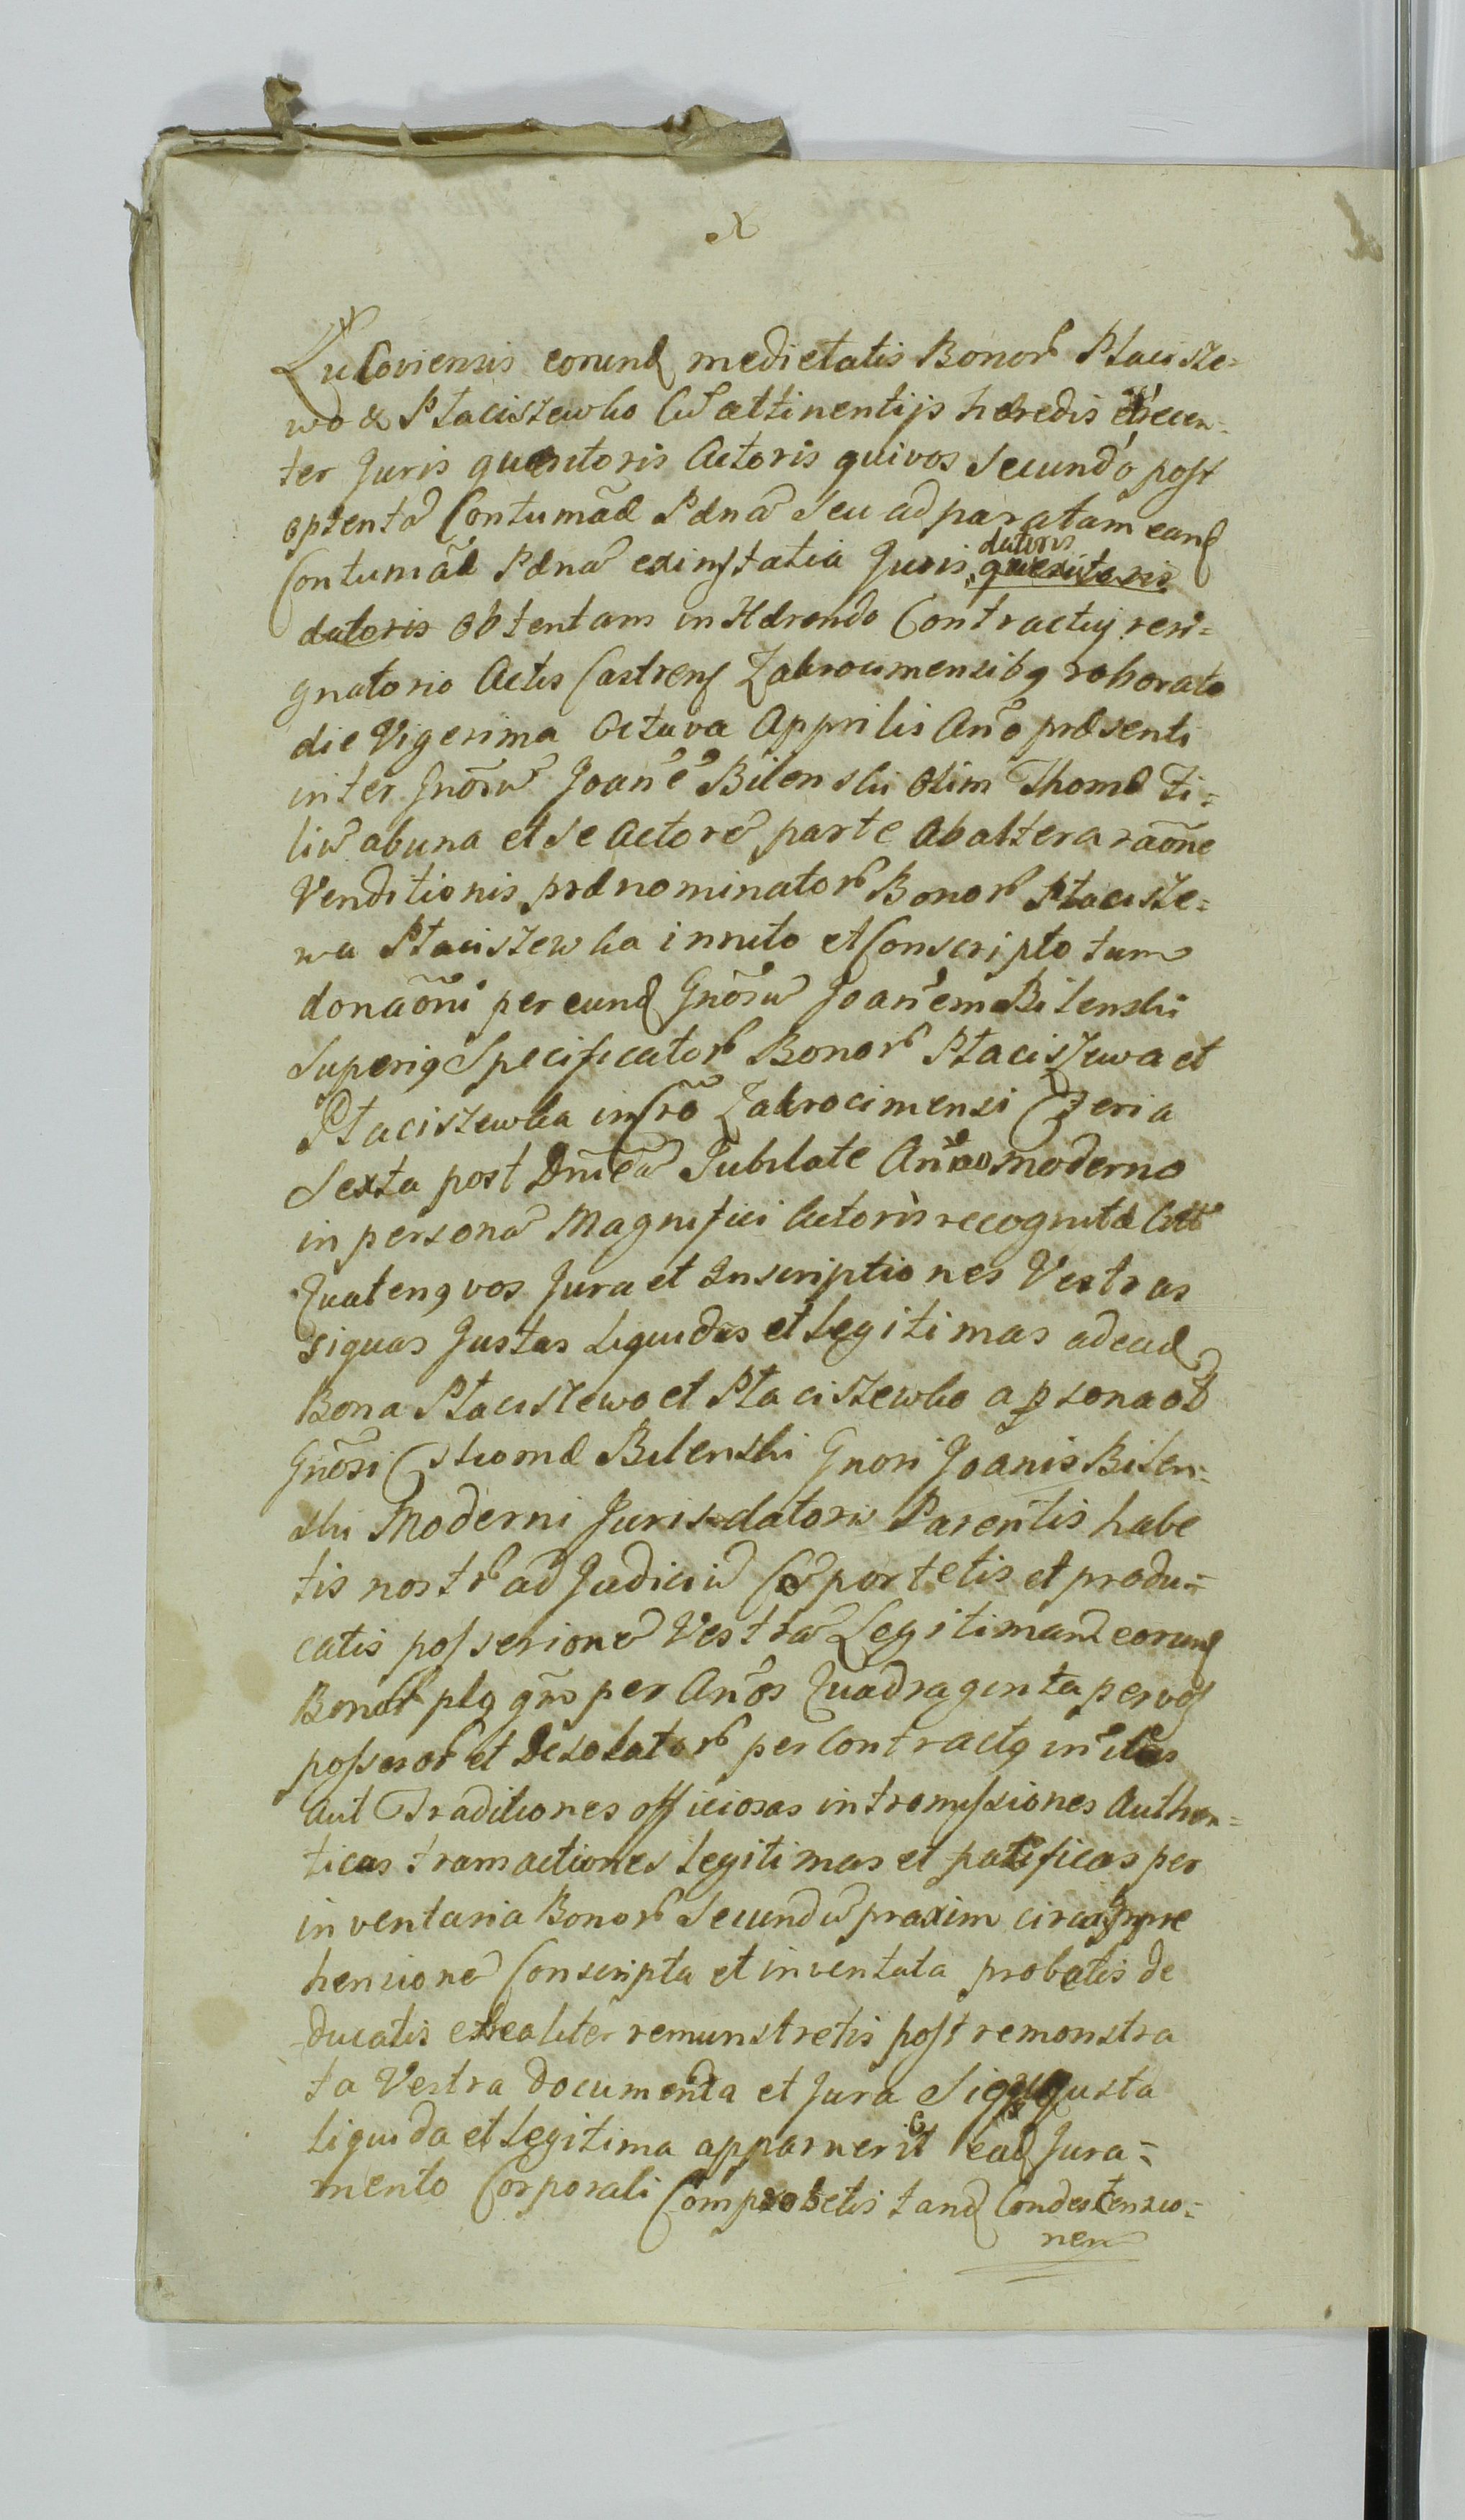 Lukoviensis eorund medietatis Bonor Ptacisze=
wo & Ptaciszewko Cũ attinentijs hæredis et recen=
ter Juris quæsitoris Actoris quivos Secundó post
optentã Contumãæ Pænã seu ad paratam eand
Contumãæ Pænã ex instatia Juris datoris quæsitoris
datoris obtentam in Hærendo Contractuj resi=
gnatorio Actis Castrens Zakrocimensibq roborato
die Vigesima Octava Apprilis Año præsenti
inter Gnõsũ Joañẽ Bilenski Olim Thomæ Fi=
liũ ab una et se Actorẽ parte ab altera raõne
Venditionis prænominator Bonor Ptacisze=
wa Ptaciszewka innito et Conscripto tum
donaõni per eund Gnõsũ Joañem Bilenski
superiq Specificator Bonor Ptaciszewa et
Ptaciszewka in Crõ Zakrocimensi Feria
Sexta post Dnicã Jubilate Año moderno
in personã Magnifici Actoris recognitæ Att
Quatenq vos Jura et Inscriptiones Vestras
siquas Justas Liquidas et Legitimas ad ead
Bona Ptaciszewo et Ptaciszewko a psona ol
Gnõsi Thomæ Bilenski Gnosi Joanis Bilen=
ski Moderni Juris datoris Parentis habe
tis nostr ad Judiciũ Cõportetis et produ=
catis possesionẽ Vestrã Legitimam eorund
Bonor plq qm per Años Quadraginta per vos
possesor et Desolator per Contractq initos
Aut Traditiones officiosas intromissiones Authen=
ticas transactiones Legitimas et pacificas per
inventaria Bonor Secundũ praxim circa appre
hensionẽ Conscripta et inventata probetis de
ducatis et realiter remunstretis post remonstra
ta Vestra documenta et Jura Siquæ Justa
Liquida et Legitima apparuerit ead Jura=
mento Corporali Comprobetis tand Condescensio=
nem